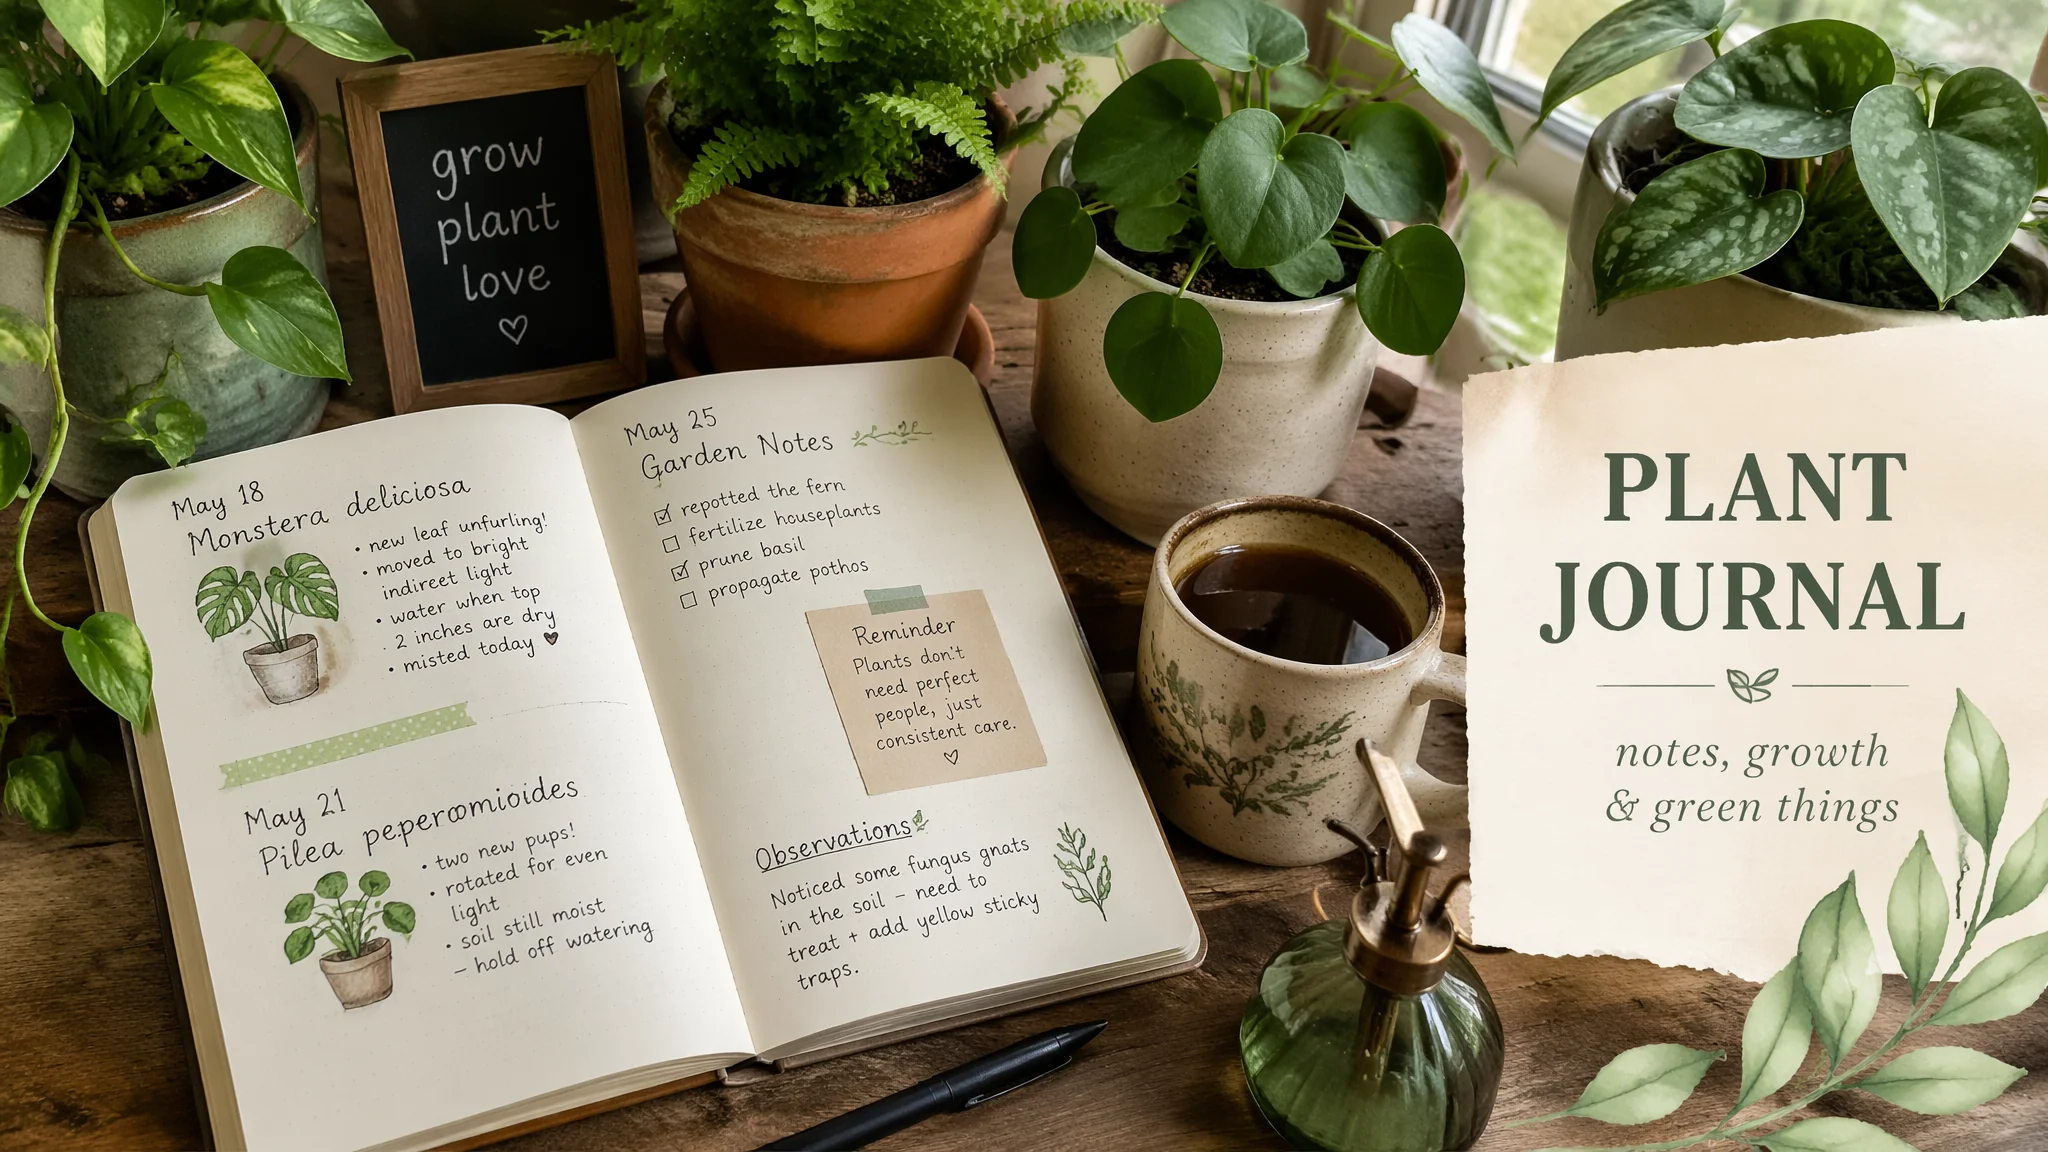 grow
plant
love
May 18
Monstera deliciosa
• new leaf unfurling!
• moved to bright
indireet light
• water when top
. 2 inches are dry
• misted today
May 21
Pilea peperomioides
• two new pups!
• rotated for even
light
• soil still moist
– hold off watering
May 25
Garden Notes
☑ repotted the fern
☐ fertilize houseplants
☑ prune basil
☐ propagate pothos
Reminder
Plants don't
need perfect
people, just
consistent care.
Observations
Noticed some fungus gnats
in the soil – need to
treat + add yellow sticky
traps.
PLANT
JOURNAL
notes, growth
& green things